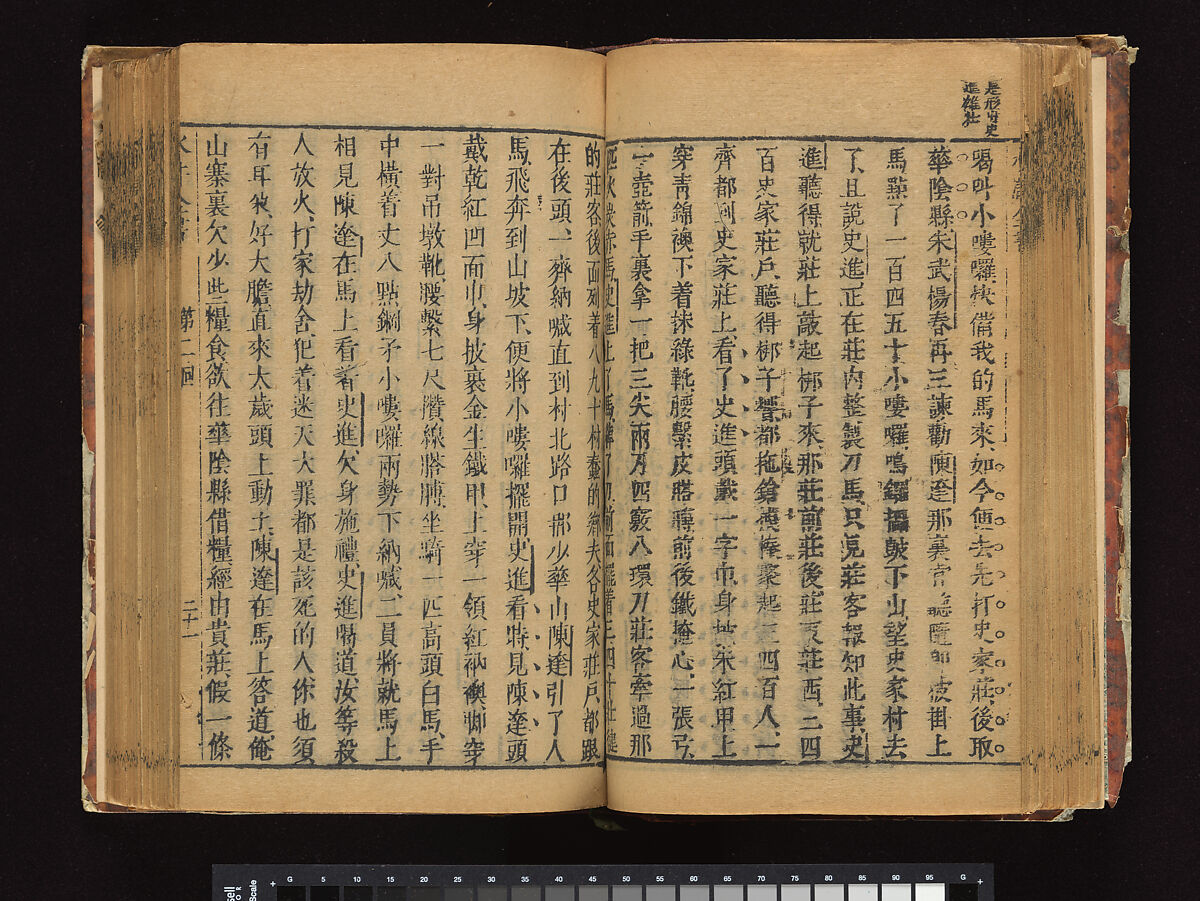 是形容史
進雄壯
喝叫小嘍囉快備我的馬來如今便去先打史家莊後取
華陰縣朱武楊春再三諫勸陳達那裏肯聽隨即披掛上
馬㸃了一百四五十小嘍囉鳴鑼擂鼓下山望史家村去
了且說史進正在莊內整製刀馬只見莊客報知此事史
進聽得就莊上敲起梆子來那莊前莊後莊東莊西三四
百史家莊戶聽得梆子響都拖鎗拽棒聚起三四百人一
齊都到史家莊上看了史進頭戴一字巾身披朱紅甲上
穿青錦襖下着抹綠靴腰繫皮膊前後鐵掩心一張弓
一壺箭手裏拿一把三尖兩刃四竅八環刀莊客牽過那
匹火炭赤馬史進上了馬綽了刀前面擺着三四十壯健
的莊客後面列着八九十村蠢的鄉夫各史家莊戶都跟
在後頭一齊納喊直到村北路口那少華山陳達引了人
馬飛奔到山坡下便將小嘍囉擺開史進看時見陳達頭
戴乾紅凹面巾身披裹金生鐵甲上穿一領紅衲襖脚穿
一對吊墩靴腰繫七尺攢線膊坐騎一匹高頭白馬手
中橫着丈八㸃鋼矛小嘍囉兩勢下納喊二員將就馬上
相見陳達在馬上看着史進欠身施禮史進喝道汝等殺
人放火打家劫舍犯着迷天大罪都是該死的人你也須
有耳朶好大膽直來太歲頭上動土陳達在馬上答道俺
山寨裏欠少些糧食欲往華陰縣借糧經由貴莊假一條
第二回
二十一
G 5 10 20 25 30 35 40 50 55 60 65 70 75 80 85 90 95 G
Scale